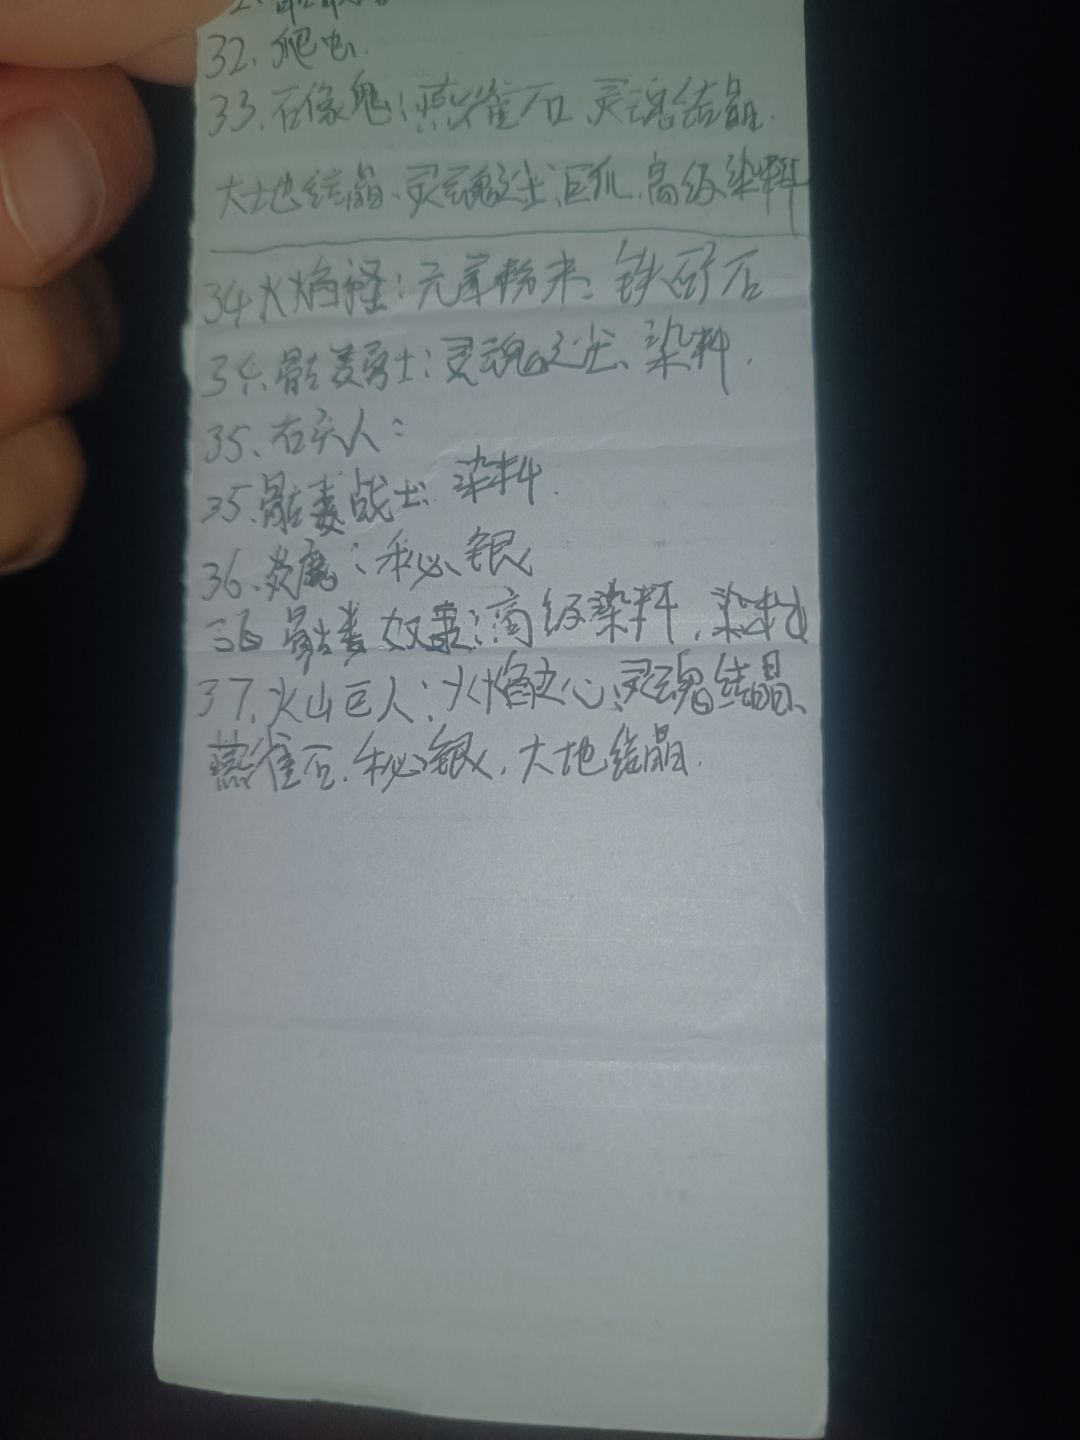 32、爬虫.
33.石像鬼:燕雀石、灵魂结晶.
大地结晶、灵魂之尘、巨爪.高级染料
34火焰怪:元素粉末、铁矿石
34.骷髅勇士:灵魂之尘、染料.
35、石头人:
35.骷髅战士:染料.
36.炎魔:秘银
36骷髅奴隶:高级染料,染料
37.火山巨人:火焰之心、灵魂结晶、
燕雀石.秘银.大地结晶.